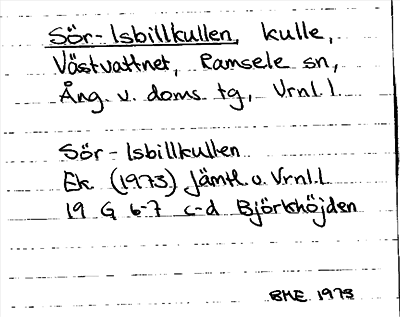 Sör-Isbillkullen, kulle,
Västvattnet, Ramsele sn,
Ång. v. doms. tg, Vrnl. l.
Sör-Isbillkullen
Ek. (1973) Jämtl. o. Vrnl. L
19 G 6-7 c-d Björkhöjden
BME 1973